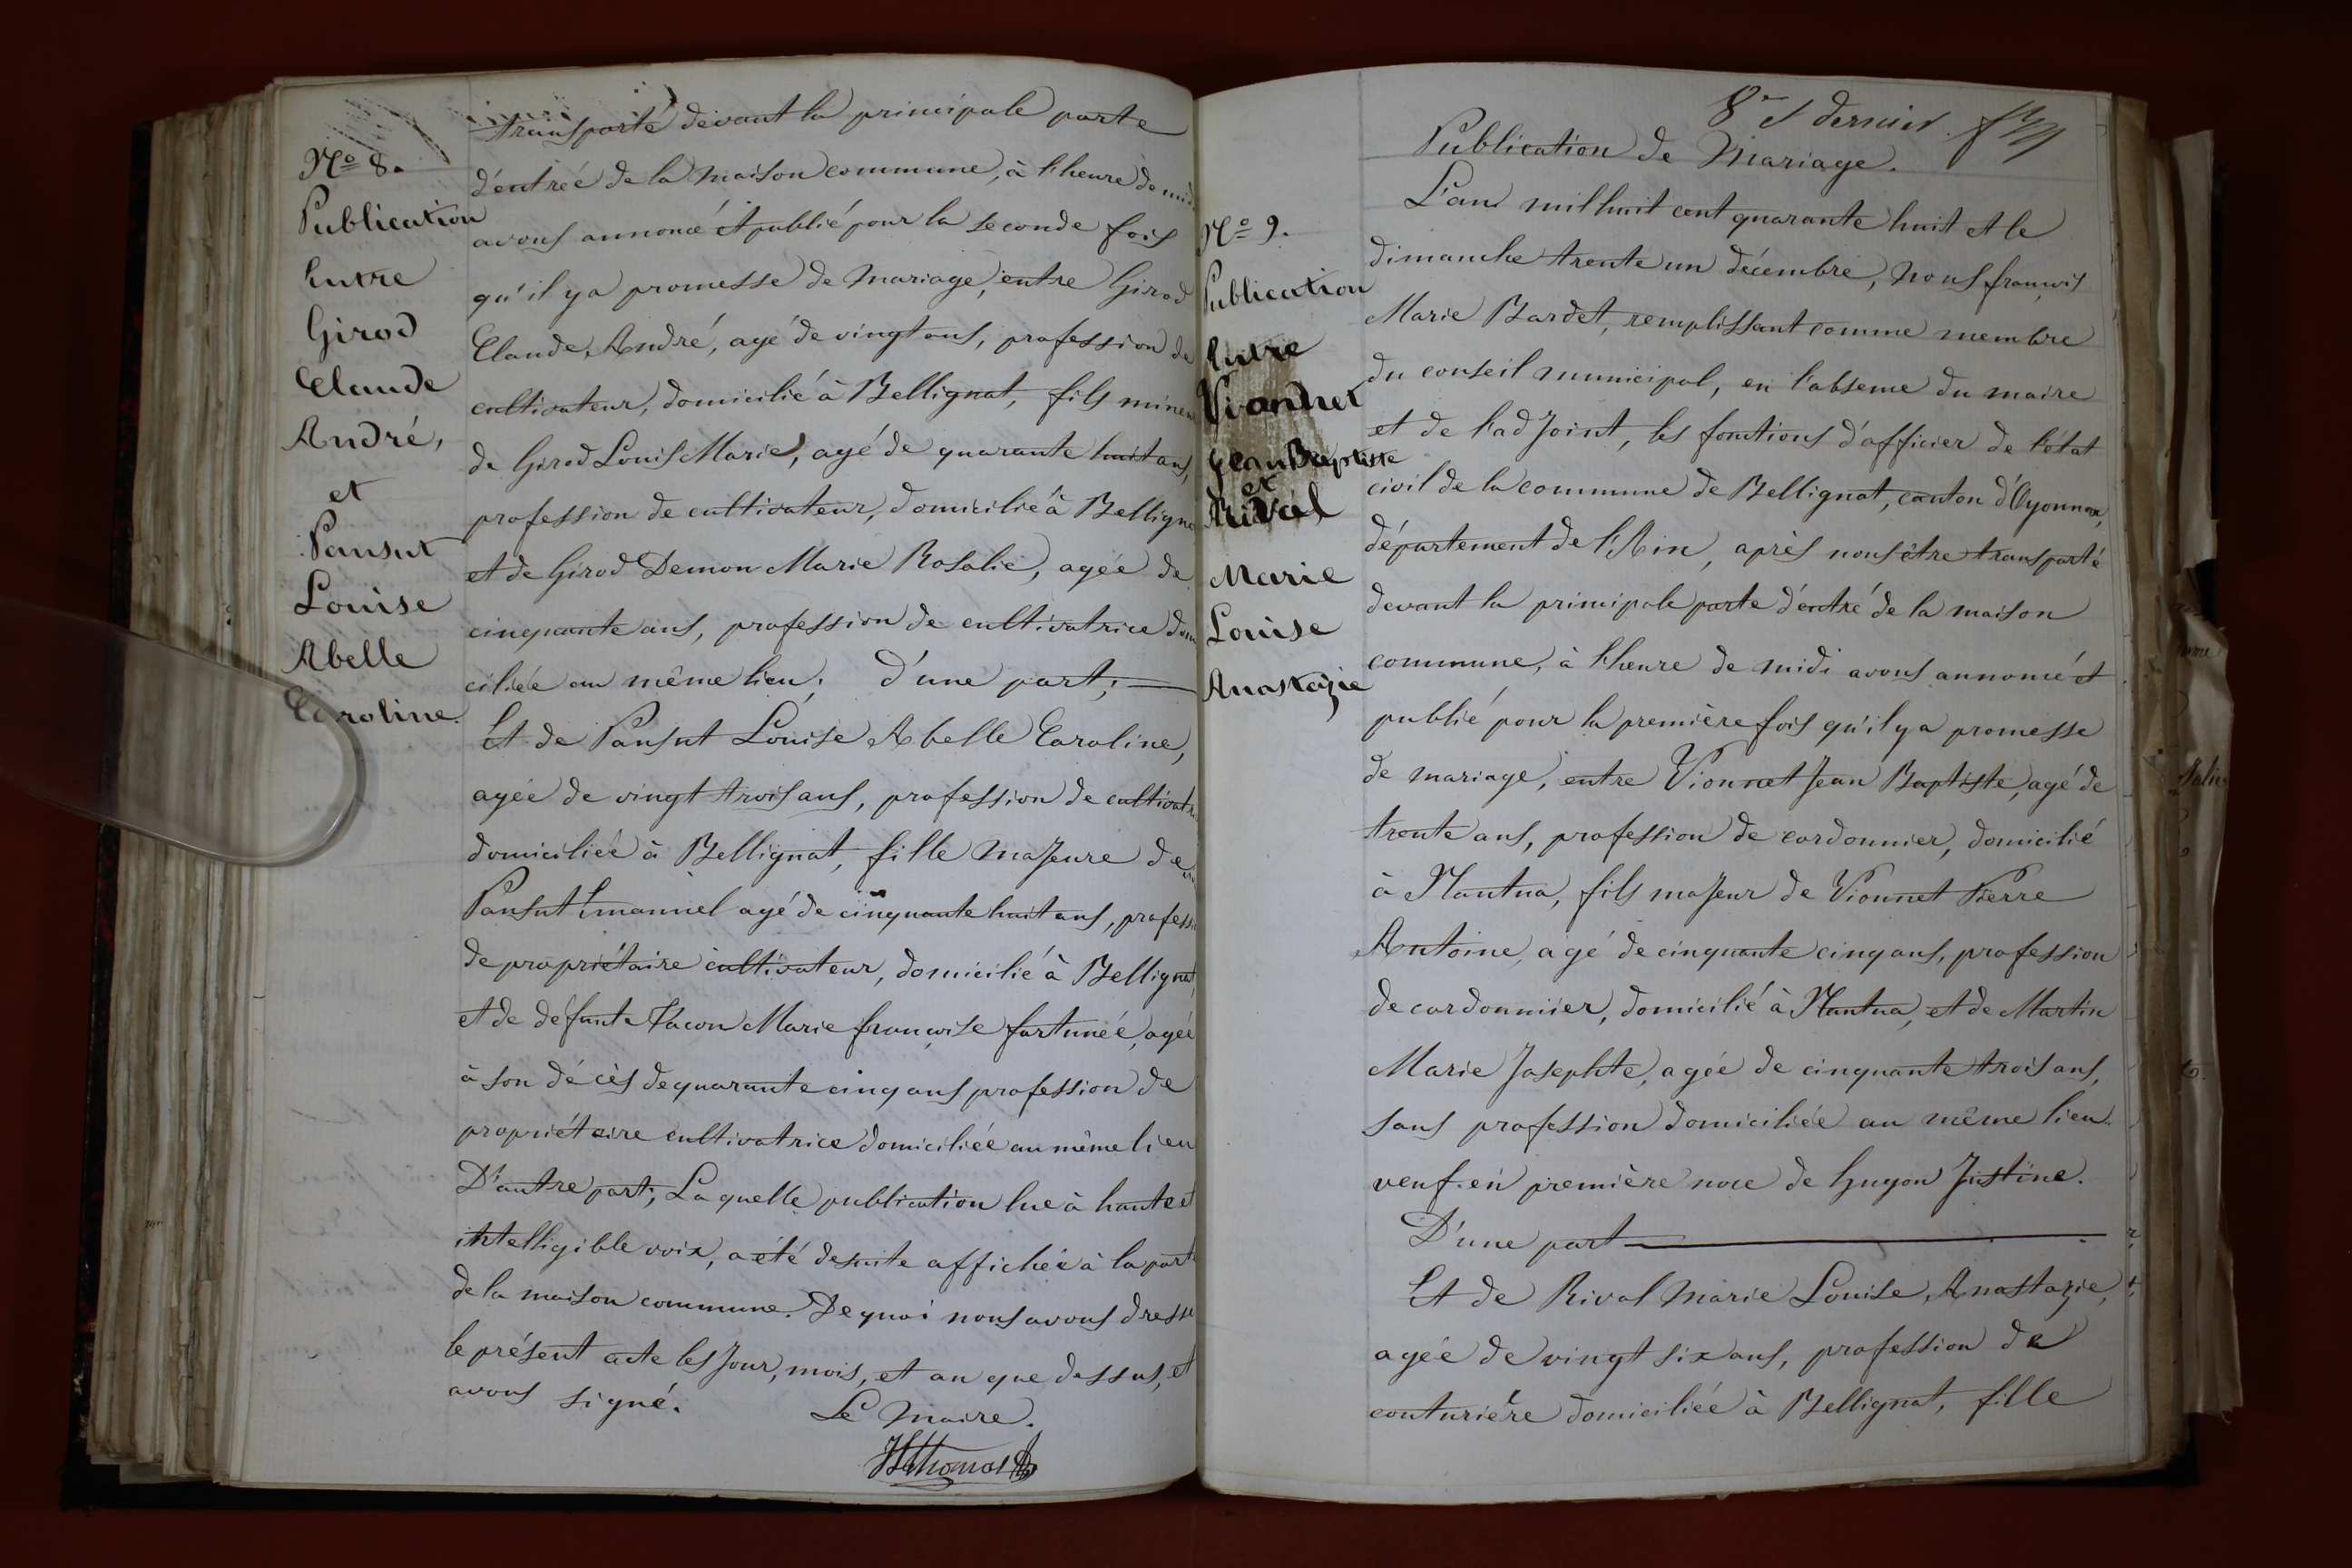 Nº 8.
Publication
Entre
Girod
Claude
André,
et
Pansut
Louise
Abelle
Caroline.
transporté devant la principale porte
d'entrée de la maison commune, à l'heure de midi
avons annoncé et publié pour la seconde fois
qu'il y a promesse de mariage, entre Girod
Claude, André, agé de vingt ans, profession de
cultivateur, domicilié à Bellignat, fils mineur
de Girod Louis Marie, agé de quarante huit ans,
profession de cultivateur, domicilié à Bellignat
et de Girod Demon Marie Rosalie, agée de
cinquante ans, profession de cultivatrice domi
ciliée au même lieu; D'une part;
Et de Pansut Louise Abelle Caroline,
agée de vingt trois ans, profession de cultivatrice
domiciliée à Bellignat, fille majeure de
Pansut Emanuel agé de cinquante huit ans, profession
de propriétaire cultivateur, domicilié à Bellignat,
et de défunte Tacon Marie françoise fortunée, agée
à son décès de quarante cinq ans profession de
propriétaire cultivatrice domiciliée au même lieu
D'autre part; Laquelle publication lue à haute et
intelligible voix, a été desuite affichée à la porte
de la maison commune. De quoi nous avons dressé
le présent acte les jour, mois, et an que dessus, et
avons signé.
Le Maire.
8e et dernier
Nº 9.
Publication
Entre
Vionnet
Jean Baptiste
et
Rival
Marie
Louise
Anastazie
Publication de Mariage.
L'an mil huit cent quarante huit et le
dimanche trente un décembre, nous françois
Marie Bardet, remplissant comme membre
du conseil municipal, en l'absence du maire
et de l'adjoint, les fonctions d'officier de l'état
civil de la commune de Bellignat, canton d'Oyonnax,
département de l'Ain, après nous être transporté
devant la principale porte d'entré de la maison
commune, à l'heure de midi avons annoncé et
publié pour la première fois qu'il y a promesse
de mariage, entre Vionnet Jean Baptiste, agé de
trente ans, profession de cordonnier, domicilié
à Nantua, fils majeur de Vionnet Pierre
Antoine, agé de cinquante cinq ans, profession
de cordonnier, domicilié à Nantua, et de Martin
Marie Josephte, agée de cinquante trois ans,
sans profession domiciliée au même lieu.
veuf en première noce de Guyon Justine.
D'une part
Et de Rival Marie Louise, Anastazie,
agée de vingt six ans, profession de
couturière domiciliée à Bellignat, fille